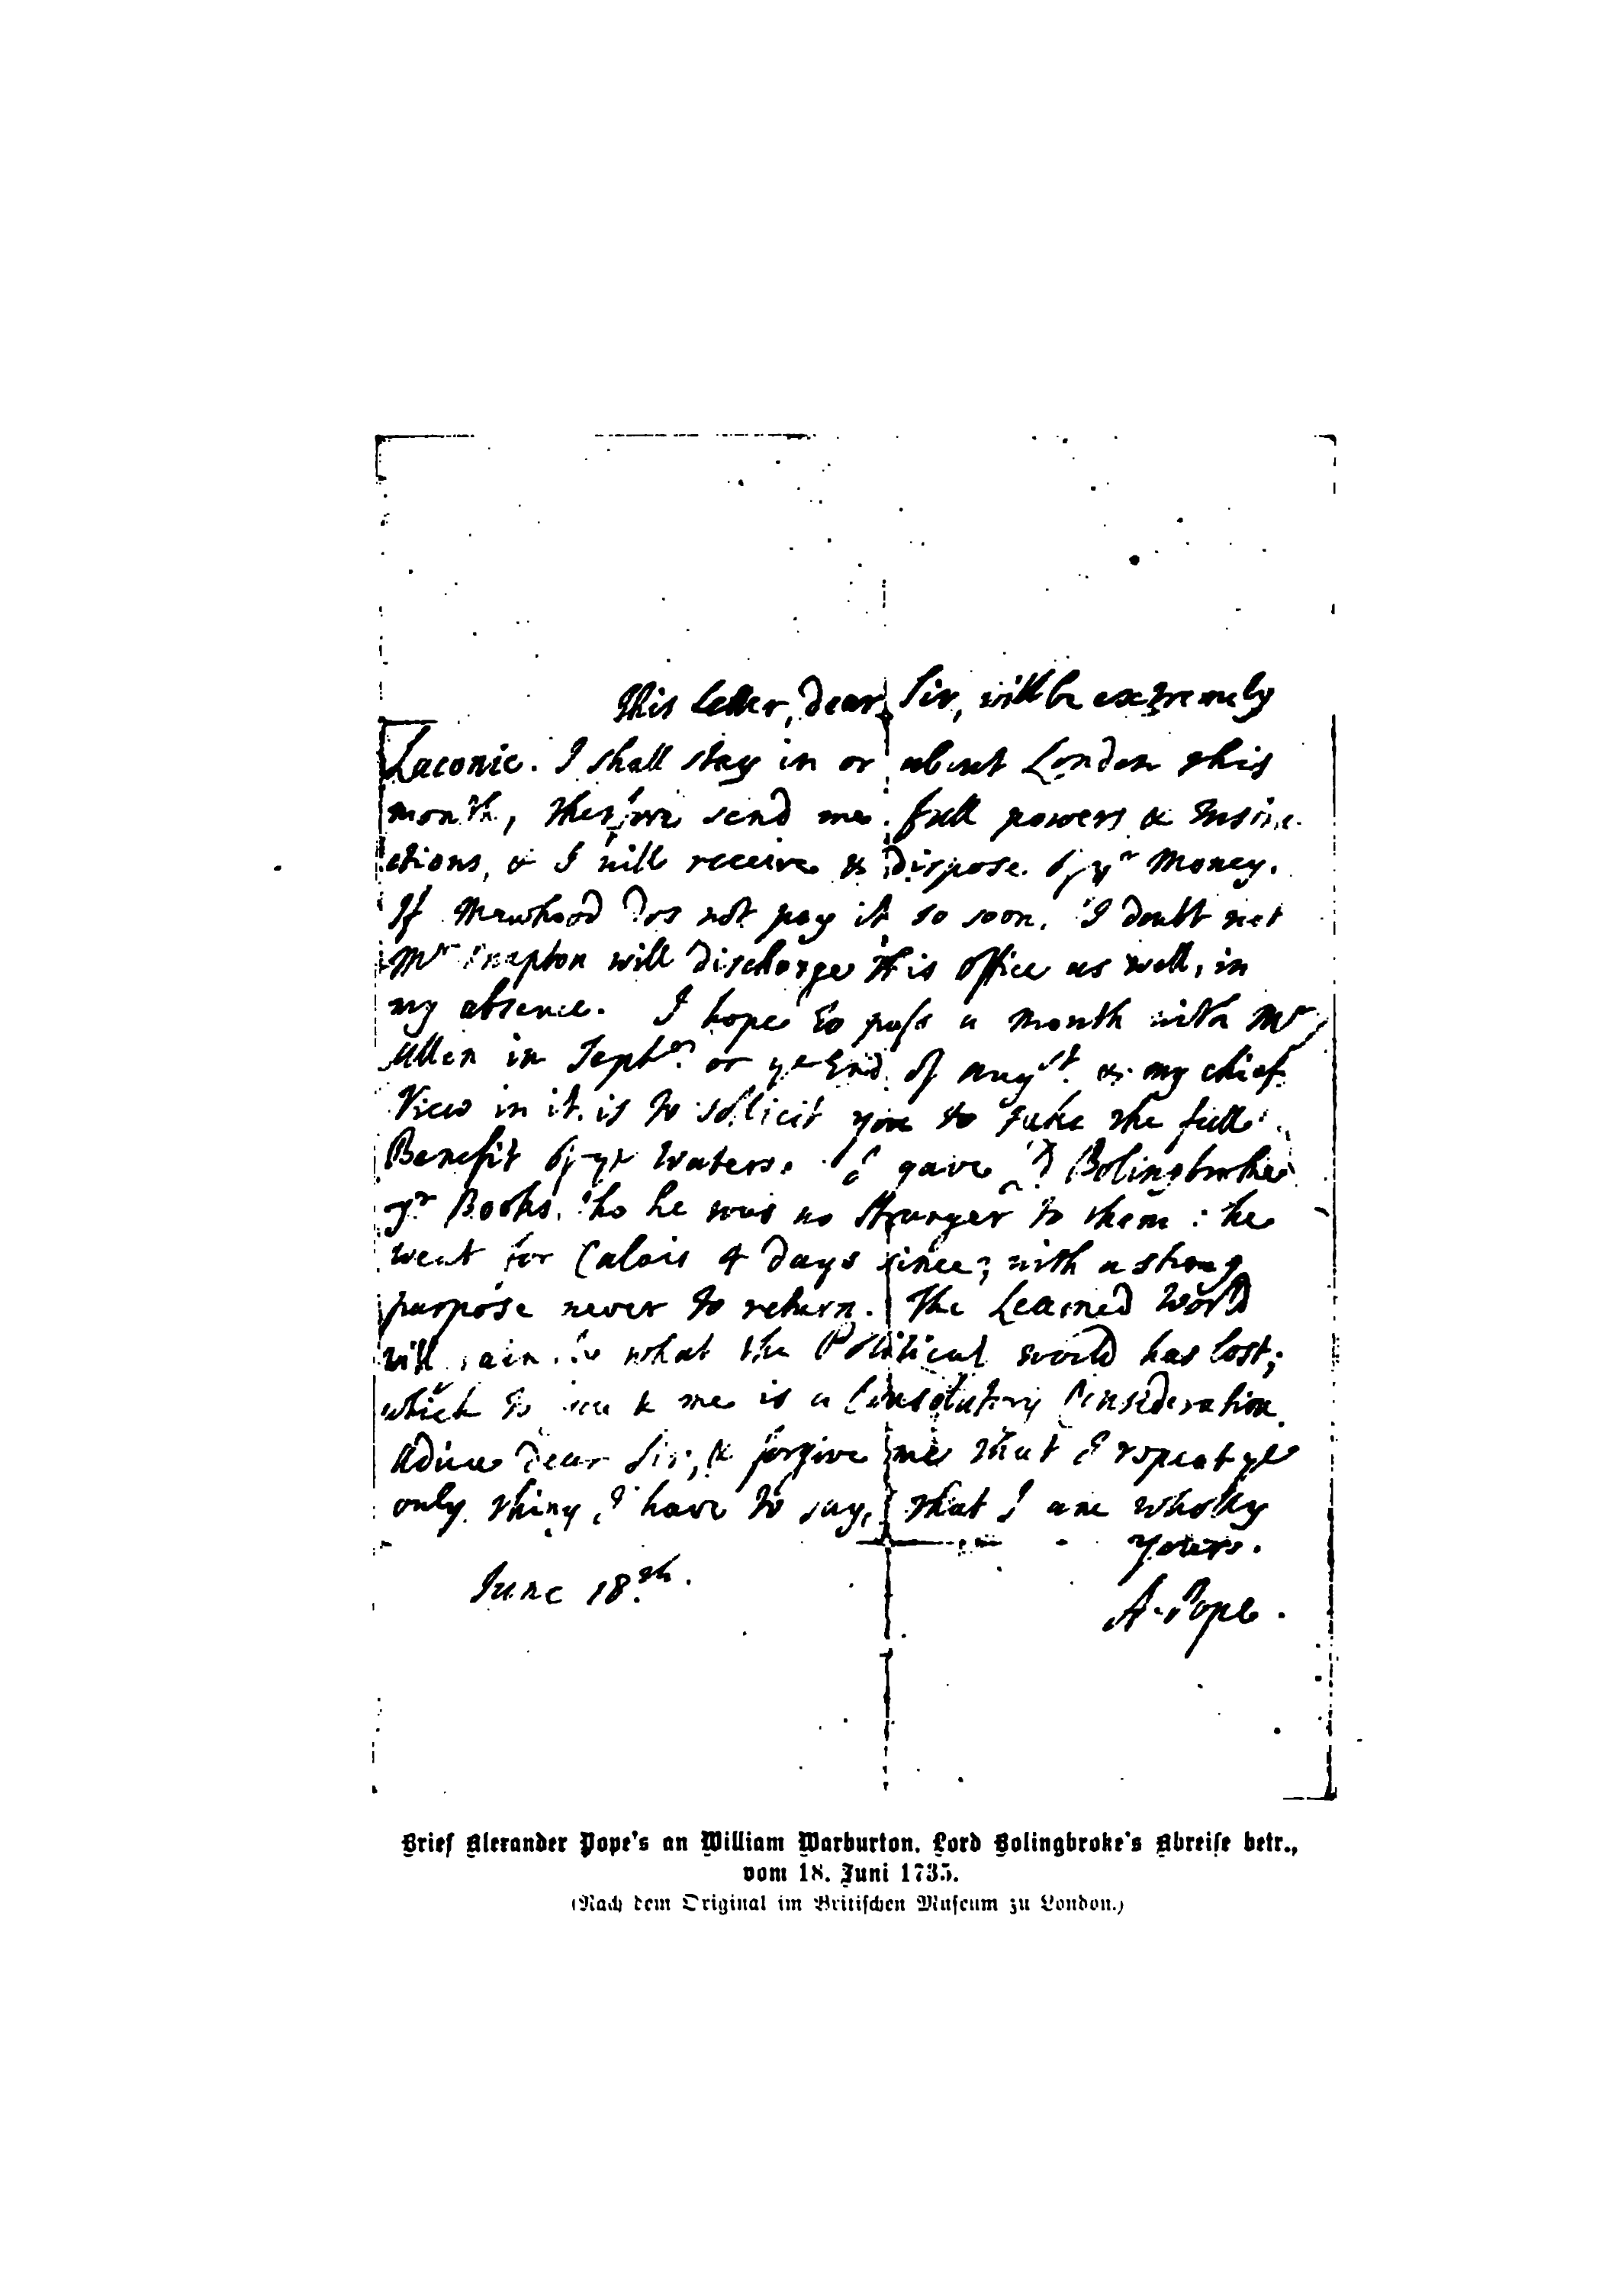 This Letter, dear Sir, will be extremely
Laconic. I shall stay in or about London this
month, therfore send me full powers & Instru-
ctions, & I will receive & dispose of yr Money.
If Mawhood dos not pay it so soon, I doubt not
Mr Knapton will discharge this Office as well, in
my absence. I hope to pass a Month with Mr
Allen in Septbr or ye End of Augst & my chief
View in it is to sollicit you to take the full
Benefit of ye Waters. I gave Ld Bolingbroke
yr Books, tho he was no Stranger to them: he
went for Calais 4 days since, with a strong
purpose never to return. The Learned World
will gain by what the Political world has lost;
which to you & me is a Consolatory Consideration.
Adieu dear Sir, & forgive me that I repeat ye
only thing I have to say, that I am wholly
Yours.
June 18th.
A. Pope.
Brief Alexander Pope's an William Warburton, Lord Bolingbroke's Abreise betr.,
vom 18. Juni 1735.
(Nach dem Original im Britischen Museum zu London.)